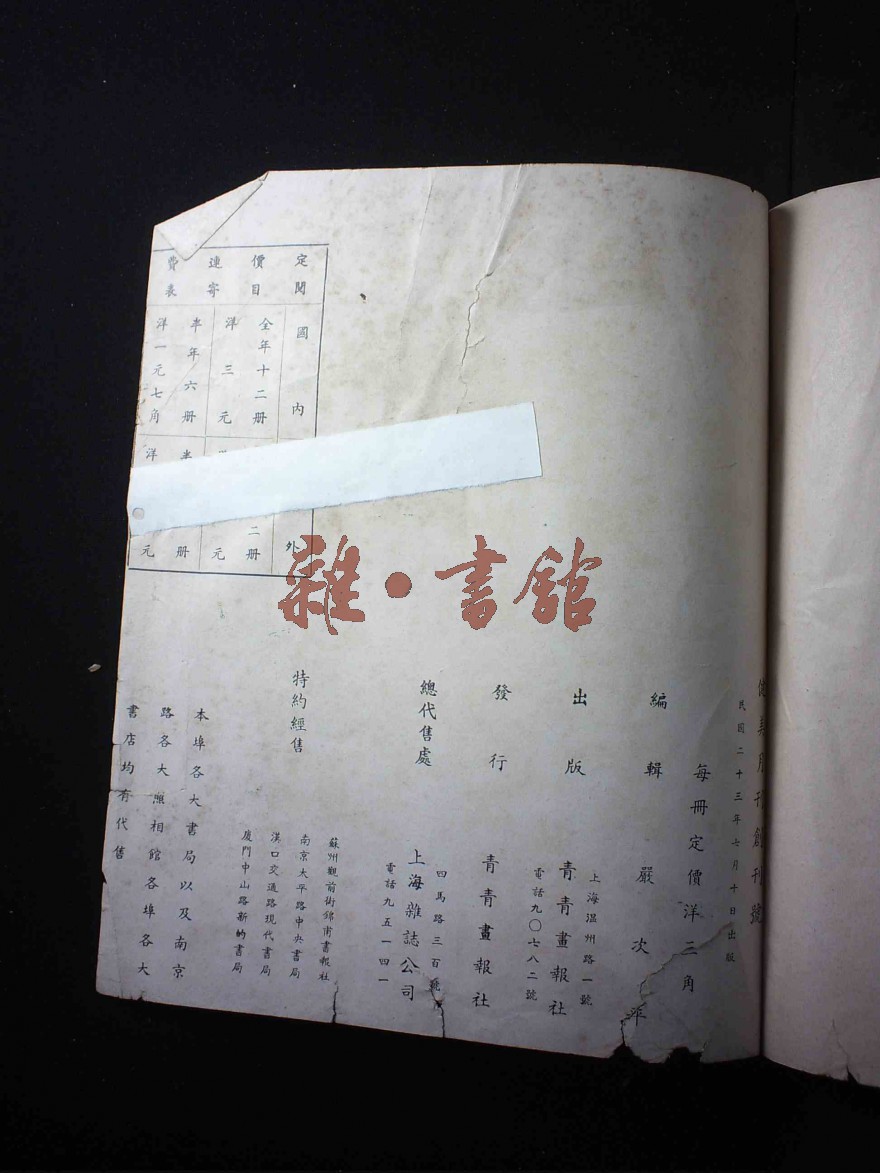 健美月刊創刊號
民國二十三年七月十日出版
每冊定價洋三角
編輯 嚴次平
出版 青青畫報社
上海溫州路一號
電話九〇七八二號
發行 青青畫報社
總代售處 上海雜誌公司
四馬路三百號
電話九五一四一
特約經售
蘇州觀前街錦甫書報社
南京太平路中央書局
漢口交通路現代書局
廈門中山路新的書局
本埠各大書局以及南京
路各大照相館各埠各大
書店均有代售
定閱價目連寄費表
國內
全年十二册
洋三元
半年六册
洋一元七角
外
二册
元
半 册
洋 元
雜·書館